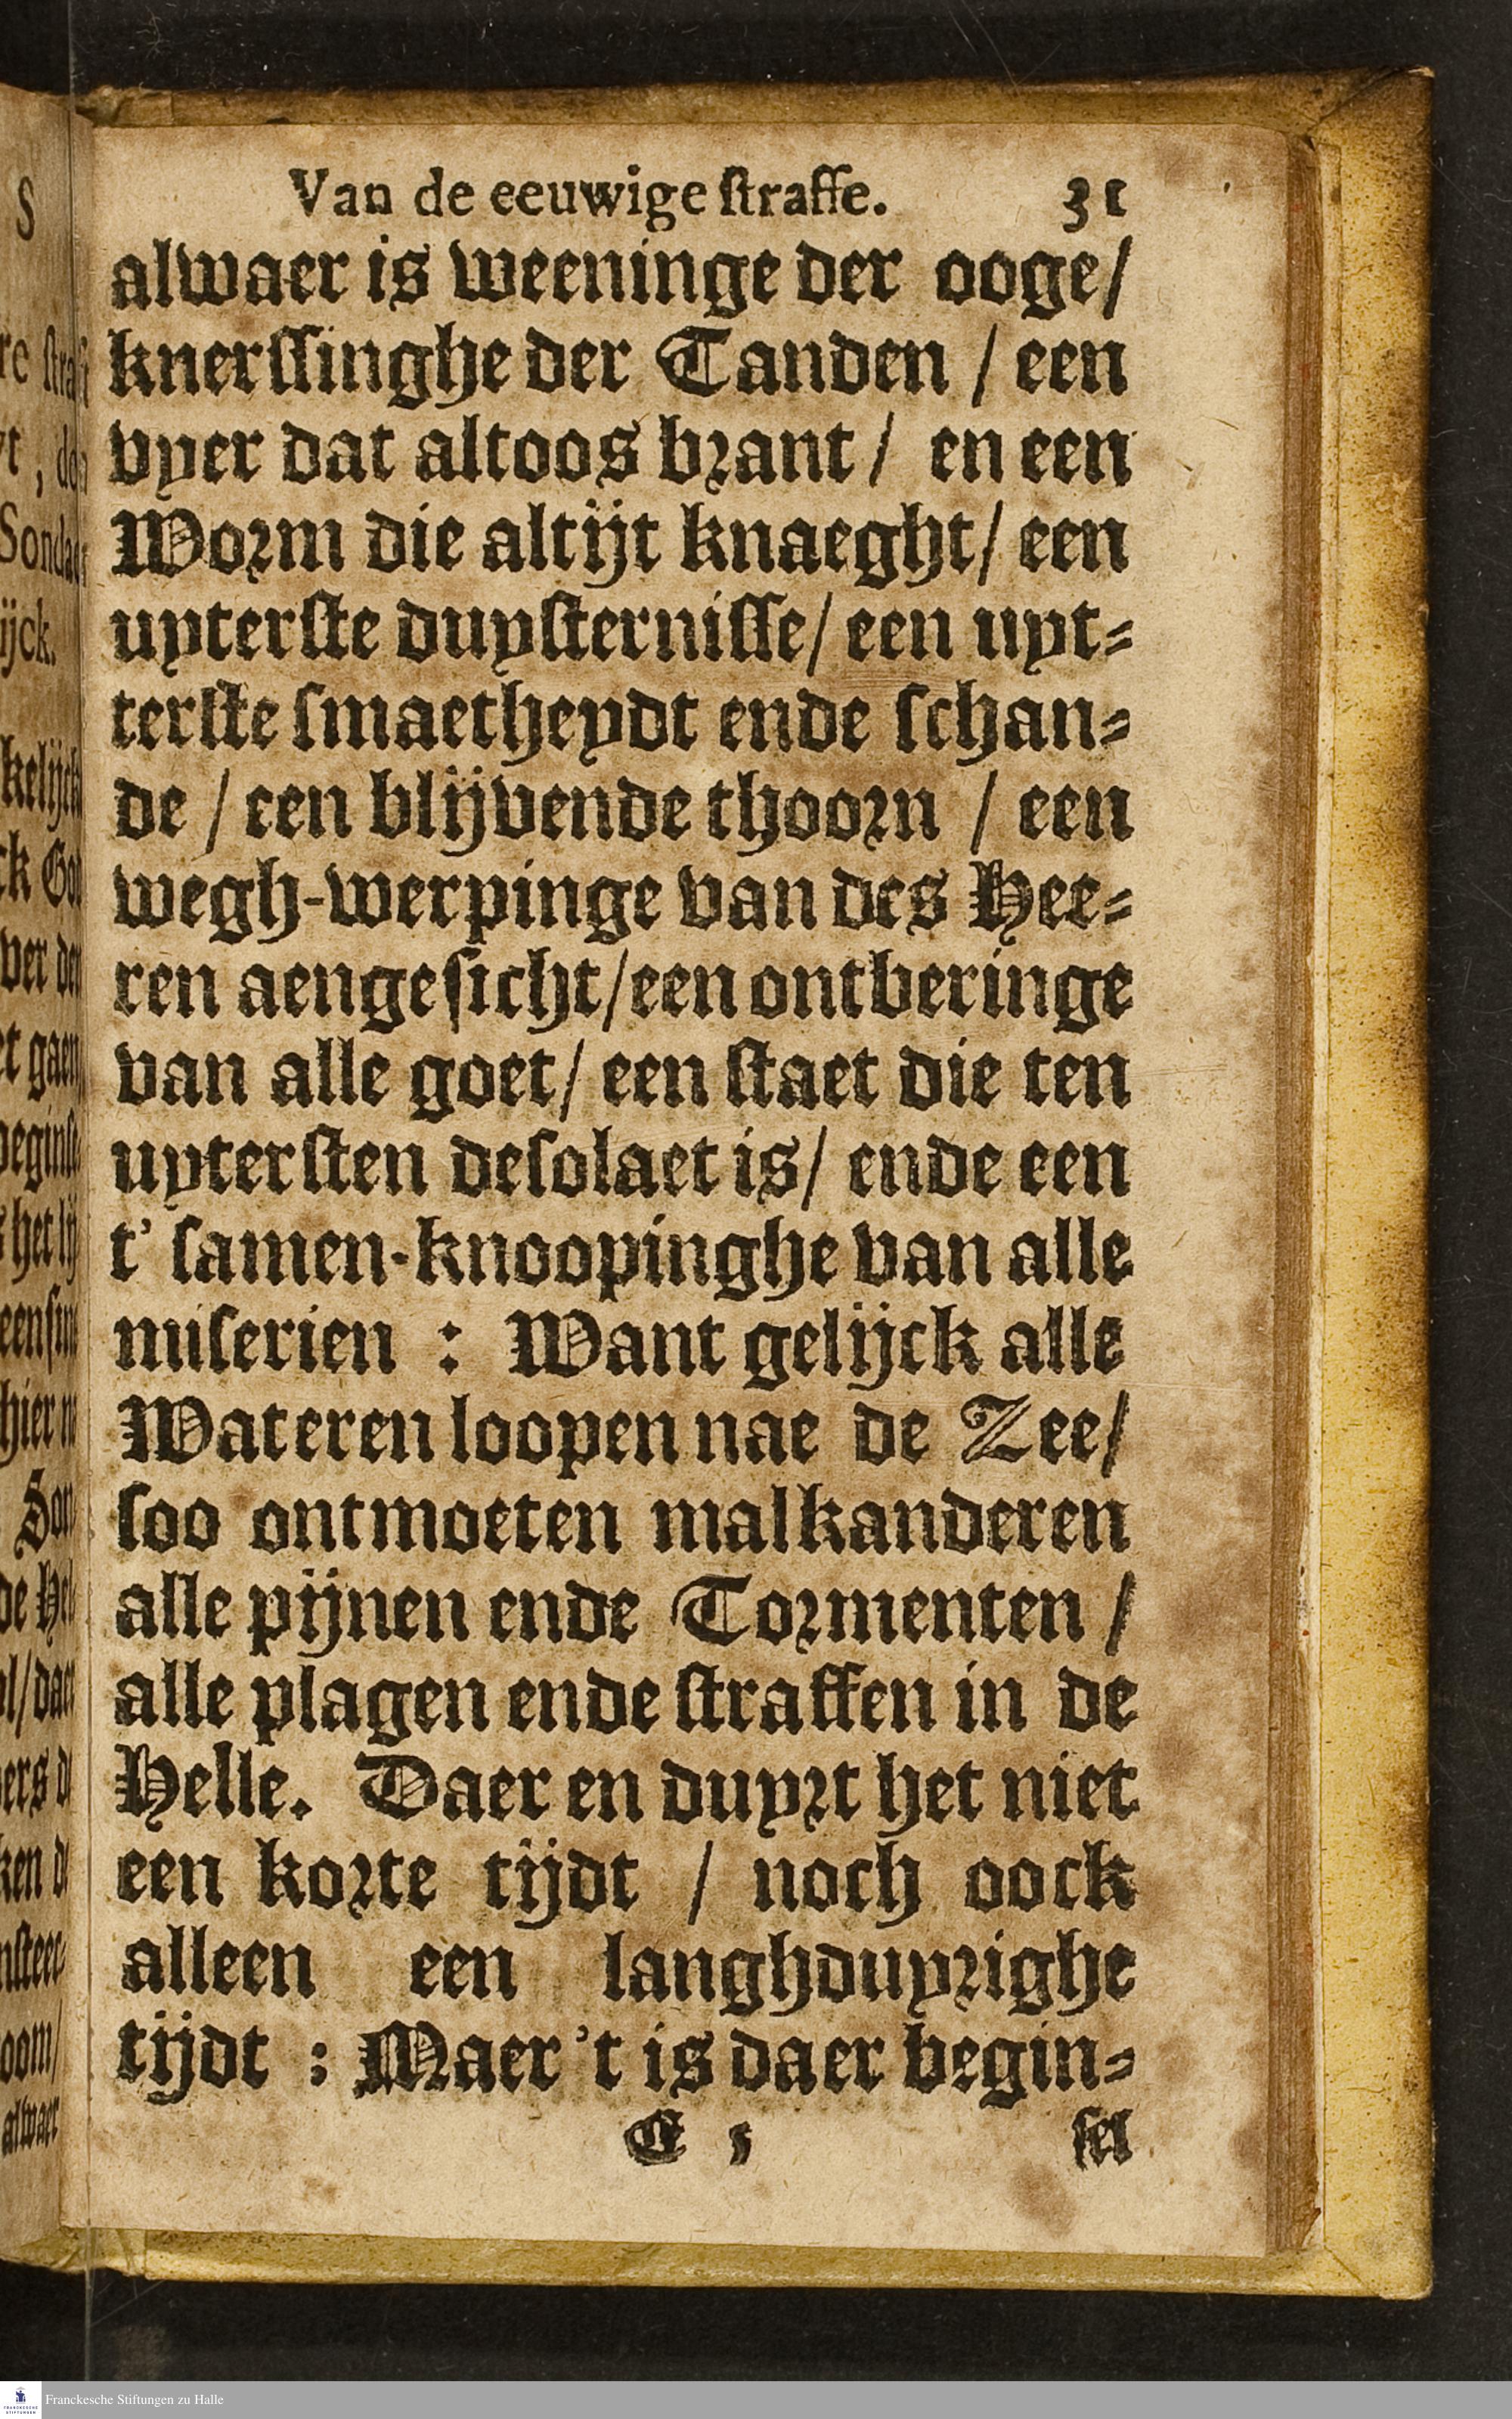 Van de eeuwige straffe. 31
alwaer is weeninge der ooge/
knerssinghe der Tanden / een
vyer dat altoos brant / en een
Worm die altijt knaeght/ een
uyterste duysternisse/ een uyt-
terste smaetheydt ende schan-
de / een blijvende thoorn / een
wegh-werpinge van des Hee-
ren aengesicht/een ontberinge
van alle goet/ een staet die ten
uytersten desolaet is/ ende een
t' samen-knoopinghe van alle
miserien : Want gelijck alle
Wateren loopen nae de Zee/
soo ontmoeten malkanderen
alle pijnen ende Tormenten /
alle plagen ende straffen in de
Helle. Daer en duyrt het niet
een korte tijdt / noch oock
alleen een langhduyrighe
tijdt : Maer 't is daer begin-
C 5 sel
Franckesche Stiftungen zu Halle